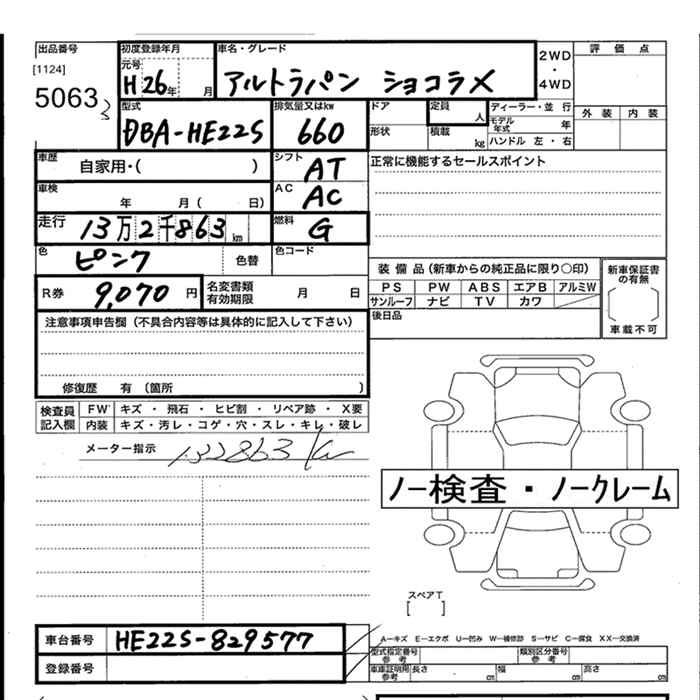 出品番号
[1124]
5063 3
初度登録年月
元号
H26年 月
車名・グレード
アルトラパン ショコラX
2WD
・
4WD
評 価 点
外 装 内 装
型式
DBA-HE22S
排気量又はkw
660
ドア
形状
定員
人
積載
kg
ディーラー・並 行
モデル年式 年
ハンドル 左 ・ 右
車歴
自家用・( )
シフト
AT
正常に機能するセールスポイント
車検
年 月( 日)
AC
AC
走行
13万2千863km
燃料
G
色
ピンク
色替
色コード
R券
9,070円
名変書類
有効期限
月 日
装 備 品(新車からの純正品に限り○印)
PS PW ABS エアB アルミW
サンルーフ ナビ TV カワ
新車保証書
の有無
車載不可
後日品
注意事項申告欄(不具合内容等は具体的に記入して下さい)
修復歴 有 (箇所 )
検査員
記入欄
FW キズ ・ 飛石 ・ ヒビ割 ・ リペア跡 ・ X要
内装 キズ・汚レ・コゲ・穴・スレ・キレ・破レ
メーター指示 132863 km
ノー検査・ノークレーム
スペアT
[ ]
車台番号
HE22S-829577
登録番号
A−キズ E−エクボ U−凹み W−補修跡 S−サビ C−腐食 XX−交換済
型式指定番号
参 考
類別区分番号
参 考
車庫証明用
参 考
長さ cm 幅 cm 高さ cm